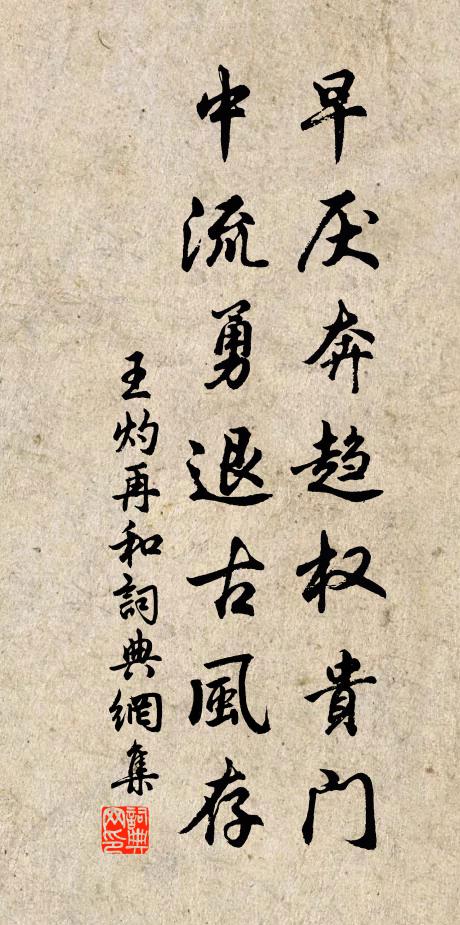 早厌奔趋权贵门
中流勇退古風存
王灼再和詞典網集
詞典网印